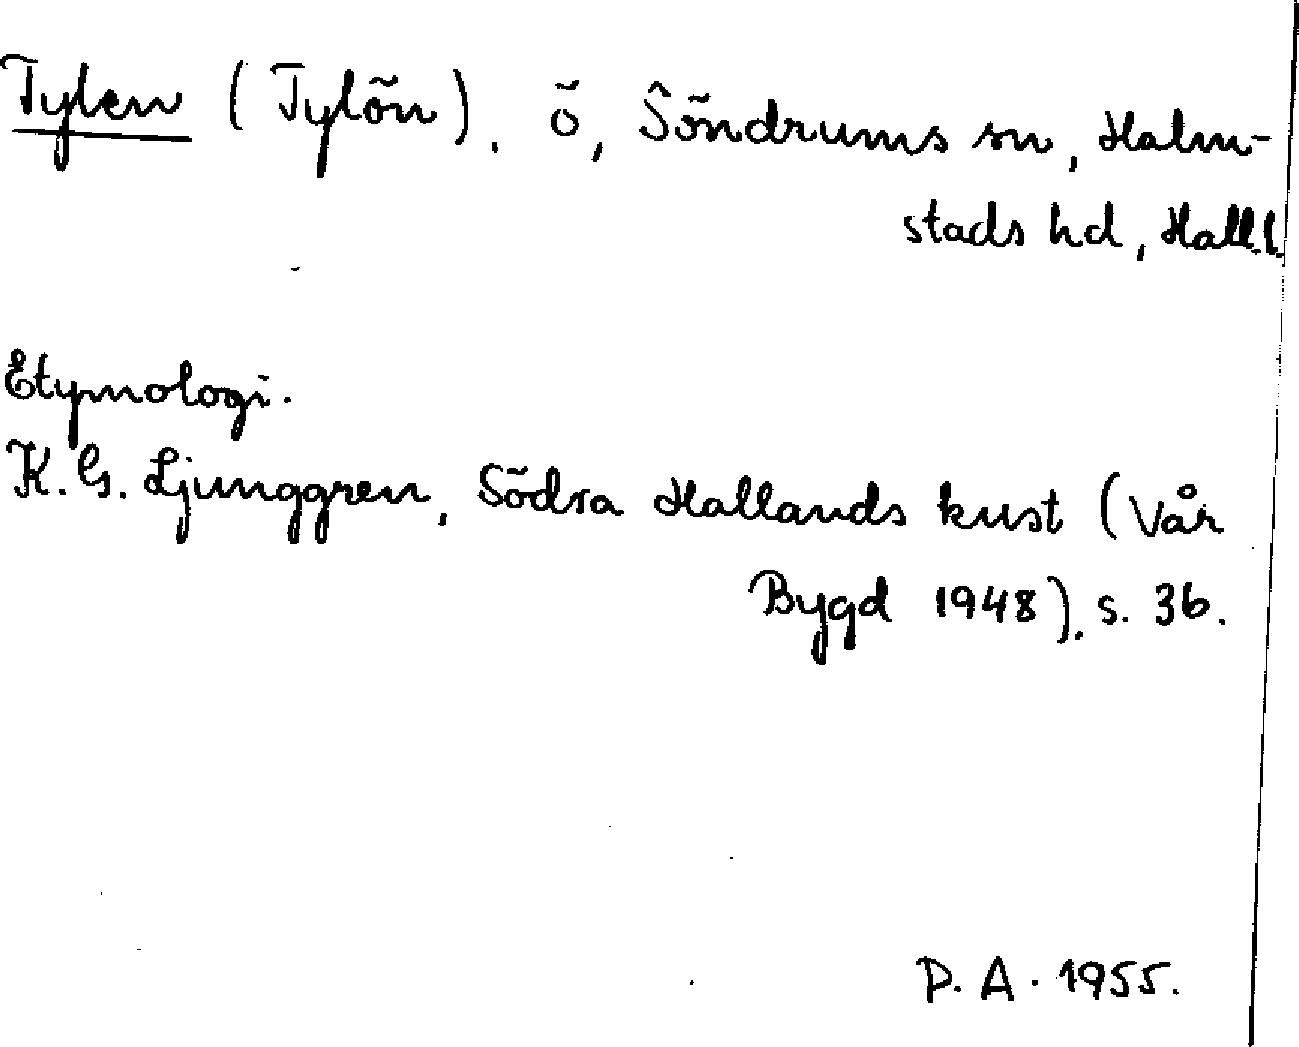 Tylen (Tylön), ö, Söndrums sn, Halm-
stads hd, Hall.l.
Etymologi.
K. G. Ljunggren, Södra Hallands kust (Vår
Bygd 1948), s. 36.
P. A. 1955.